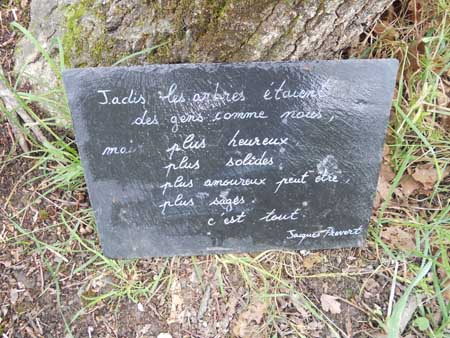 Jadis les arbres étaient
des gens comme nous,
mais plus heureux,
plus solides
plus amoureux peut être,
plus sages.
c'est tout
Jacques Prévert